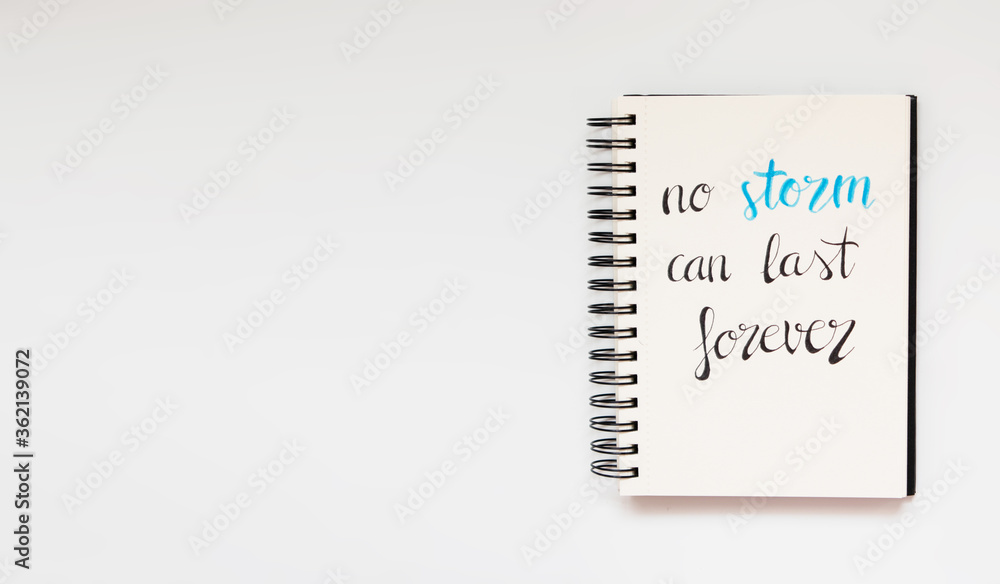 no storm
can last
forever
Adobe Stock | #362139072
Adobe Stock